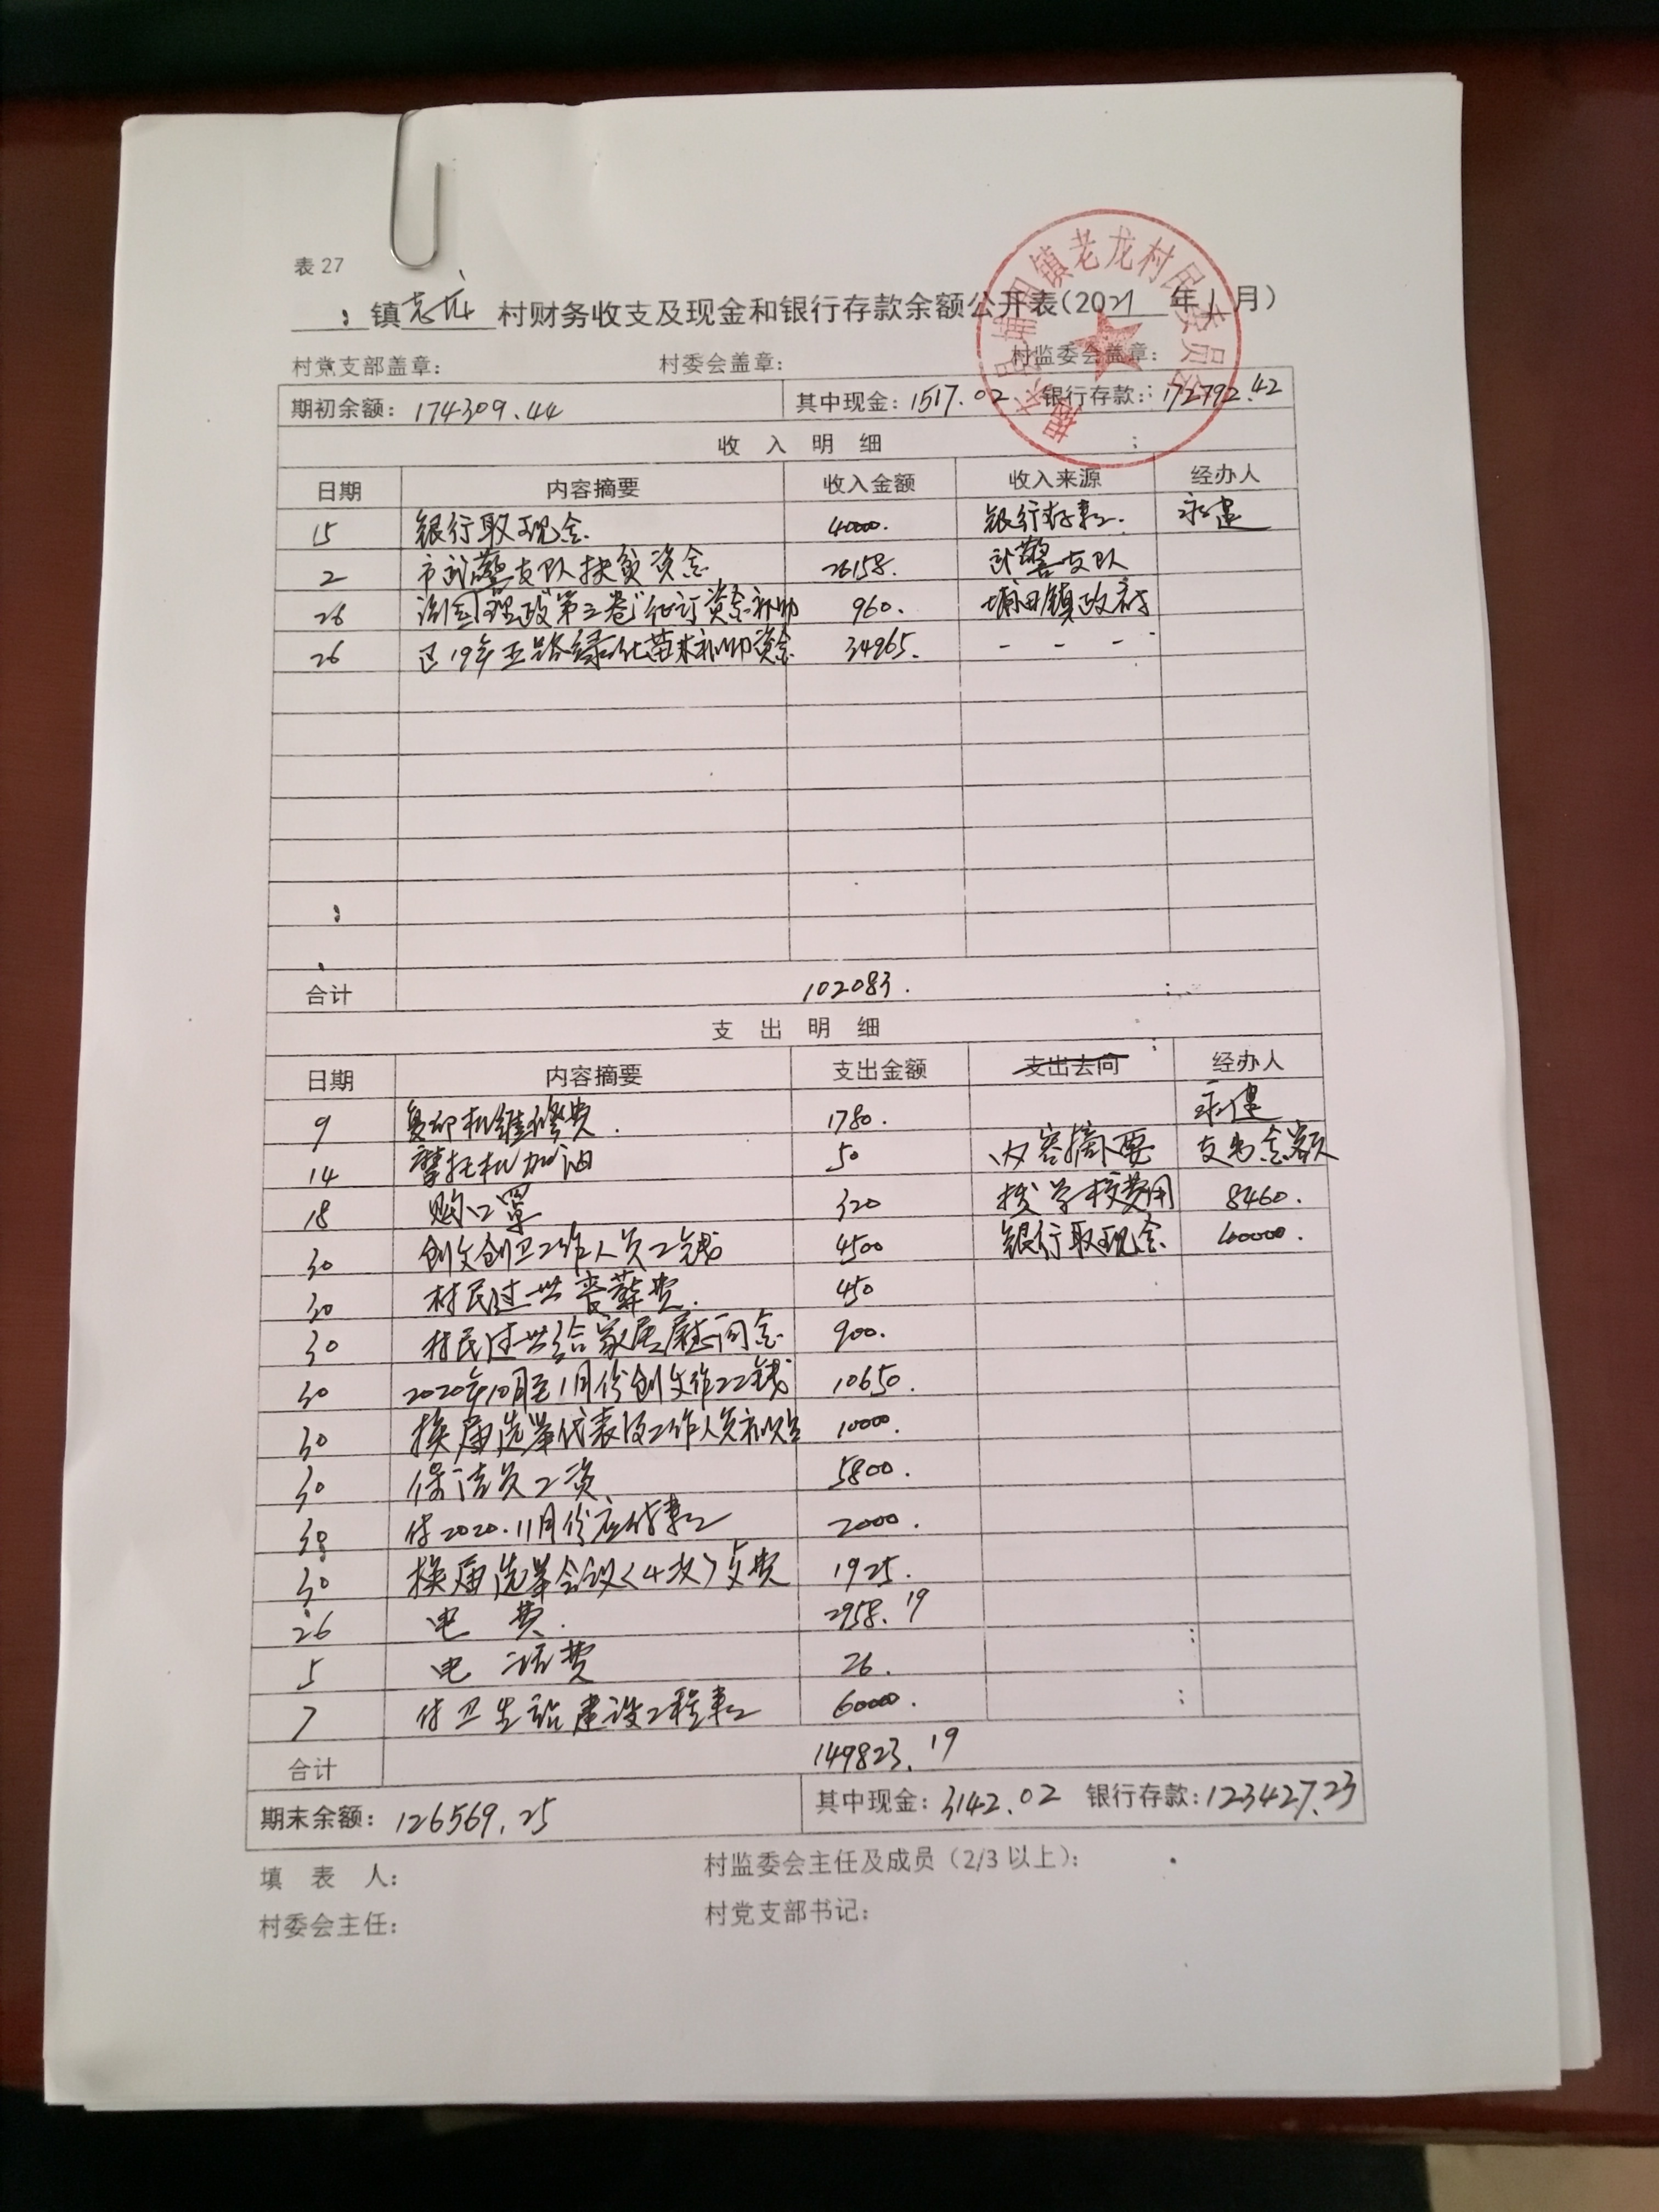 表 27
镇老龙村财务收支及现金和银行存款余额公开表(2021年1月)
揭东县埔田镇老龙村民委员会
村党支部盖章: 村委会盖章: 村监委会盖章:
期初余额: 174309.44 其中现金: 1517.02 银行存款: 172792.42
收 入 明 细
日期 内容摘要 收入金额 收入来源 经办人
15 银行取现金 40000. 银行存款. 永建
2 市武警支队扶贫资金 26158. 武警支队
26 治国理政"第三卷"征订资金补助 960. 埔田镇政府
26 区19年五路绿化苗木补助资金 34965. - - -
合计 102083.
支 出 明 细
日期 内容摘要 支出金额 支出去向 经办人
9 复印机维修费. 1780. 永建
14 摩托机加油 50 内容摘要 支出金额
18 购口罩 320 拨学校费用 8460.
30 创文创卫工作人员工钱 4500 银行取现金 40000.
30 村民过世丧葬费. 450
30 村民过世给家属慰问金 900.
30 2020年10月至1月份创文作工工钱 10650.
30 换届选举代表及工作人员补贴 10000.
30 保洁员工资 5800.
30 付2020.11月份应付款 2000.
30 换届选举会议(4次)支费 1925.
26 电 费. 2958.19
5 电 话费 26.
7 付卫生站建设工程款 60000.
合计 149823.19
期末余额: 126569.25 其中现金: 3142.02 银行存款: 123427.23
填 表 人: 村监委会主任及成员（2/3 以上）:
村委会主任: 村党支部书记: